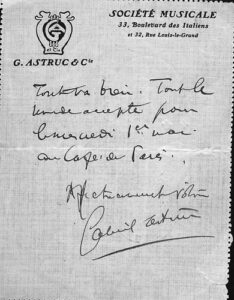 SOCIÉTÉ MUSICALE
33, Boulevard des Italiens
et 32, Rue Louis-le-Grand
G. ASTRUC & Cie
Tout va bien. Tout le
monde accepte pour
le mercredi 1er mai
au Café de Paris.
Affectueusement vôtre
Gabriel Astruc